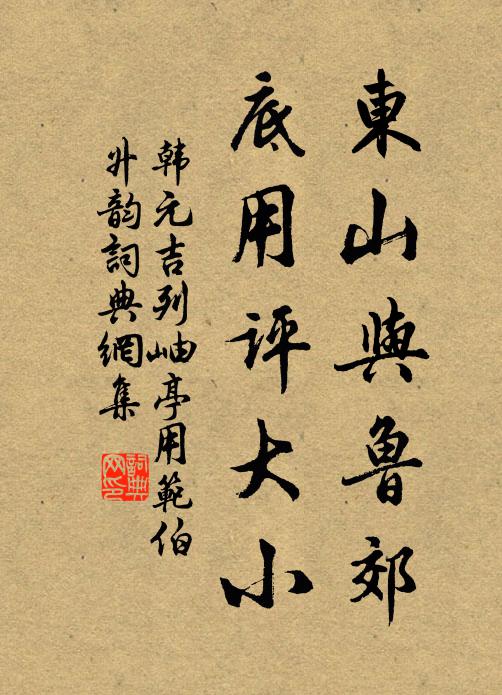 東山與魯郊
底用評大小
韩元吉列岫亭用範伯
升韵詞典網集
詞典
网印